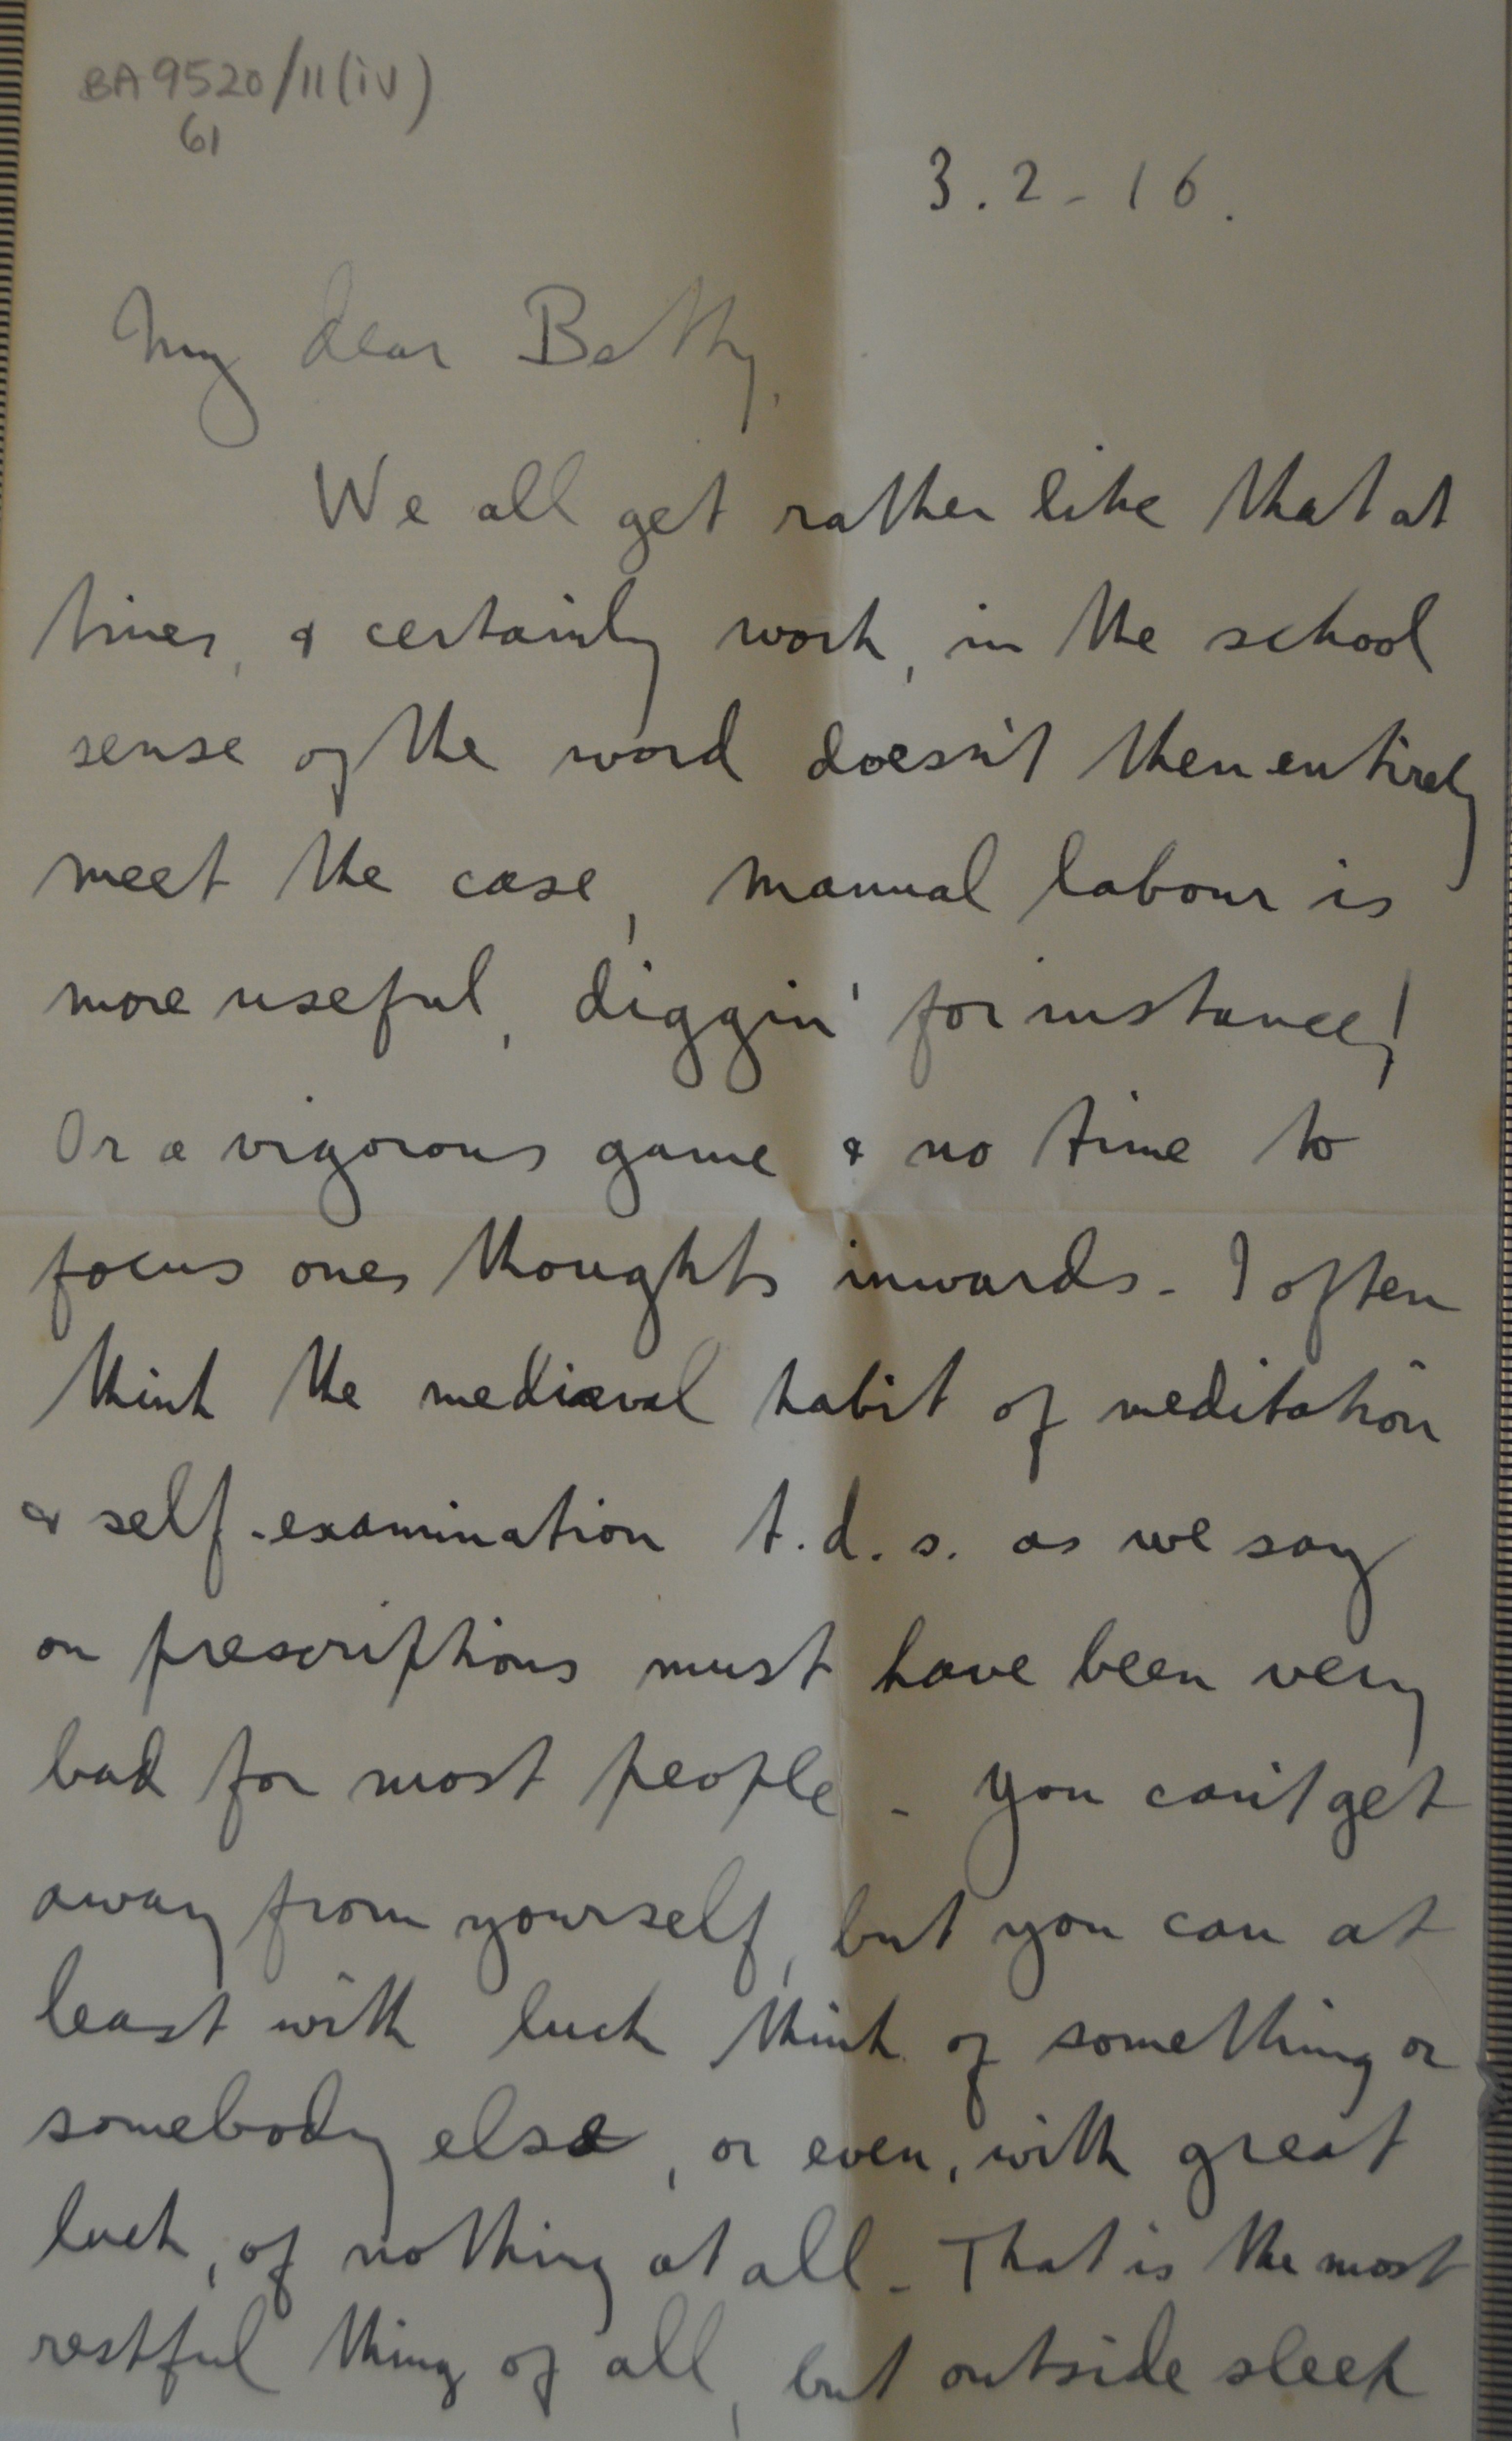 BA 9520/11(iv)
61
3.2-16.
My dear Betty,
We all get rather like that at
times, & certainly work, in the school
sense of the word doesn't then entirely
meet the case, manual labour is
more useful, diggin' for instance!
Or a vigorous game & no time to
focus ones thoughts inwards - I often
think the mediæval habit of meditation
& self-examination t.d.s. as we say
on prescriptions must have been very
bad for most people - you can't get
away from yourself, but you can at
least with luck think of something or
somebody else, or even, with great
luck, of nothing at all - That is the most
restful thing of all, but outside sleep